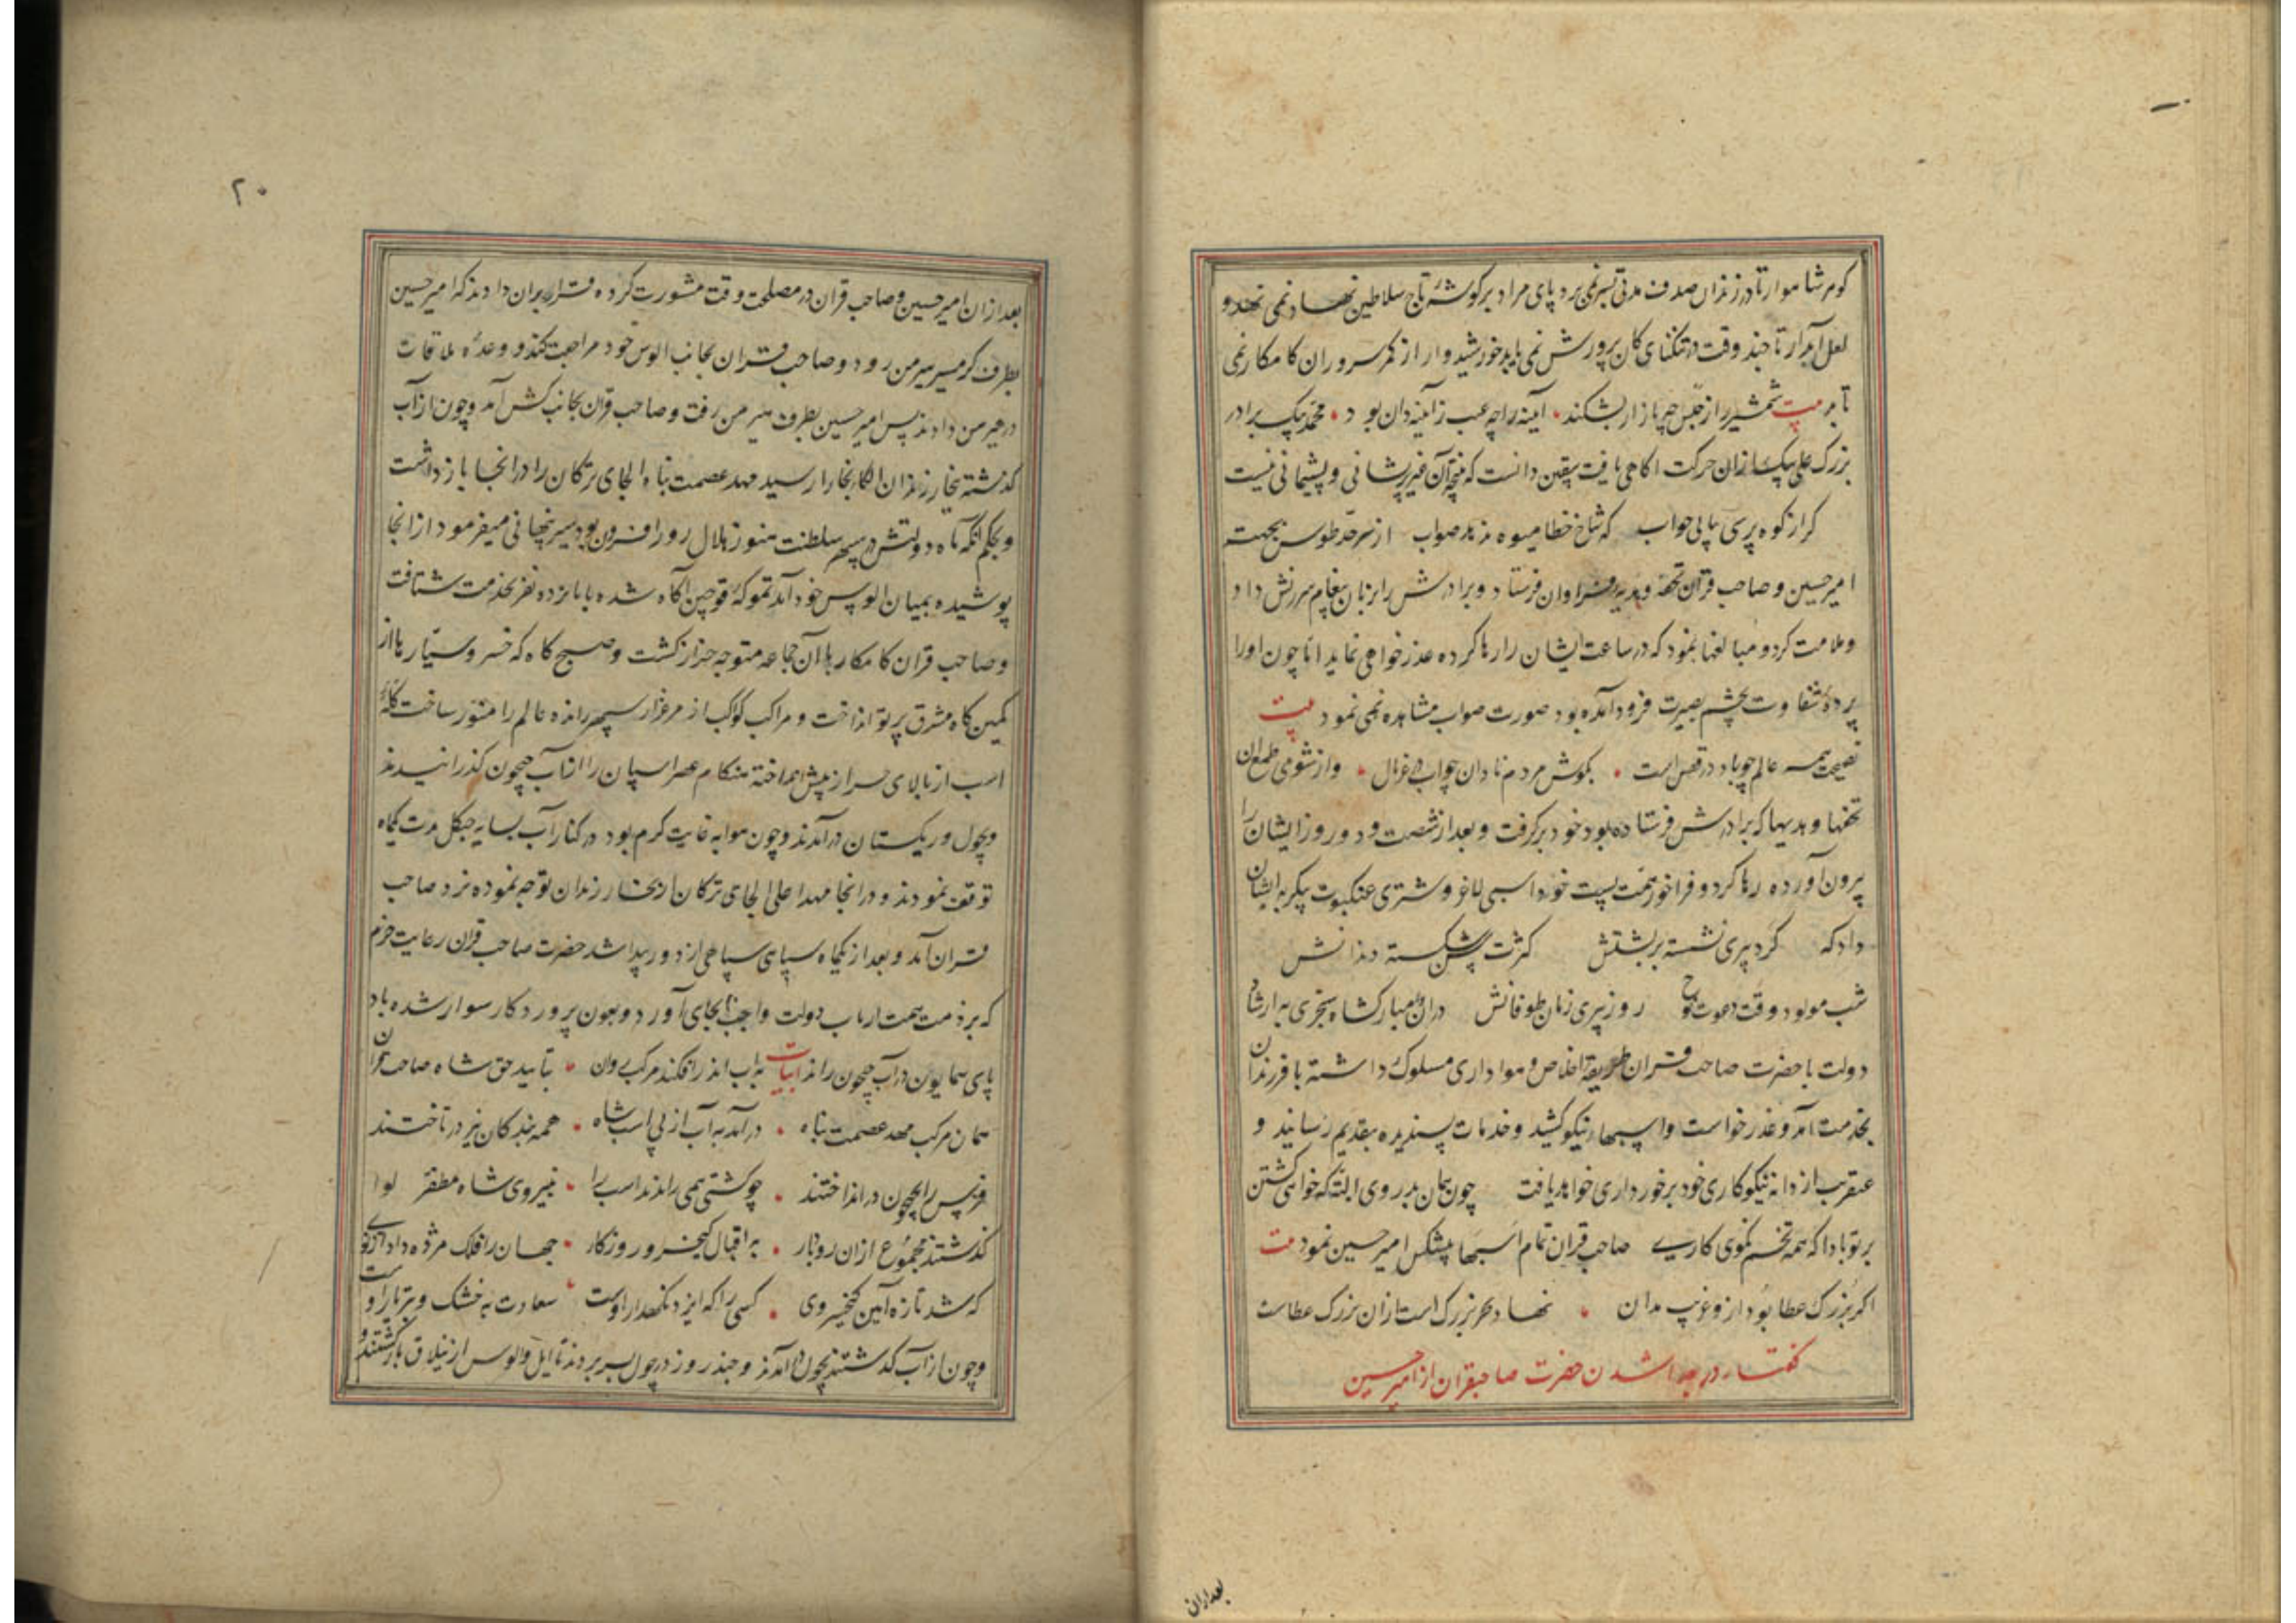 گوهر شاهوار تا در زندان صدف مدتی بسر نمی برد پای مراد بر گوشهٔ تاج سلاطین نهاد نمی نهد و
لعل آبدار تا چند وقت در تنگنای کان پرورش نمی یابد خورشیدوار از کمر سروران کامکار نمی
تابد بیت شمشیر را از حبس چه بازار بشکند آینه را چه عیب ز آینه دان بود محمد بیک برادر
بزرگ علی بیک از ان حرکت اکاهی یافت یقین دانست که نتیجه آن غیر پریشانی و پشیمانی نیست
کر از کوه پرسی بیابی جواب که شاخ خطا میوه ندهد صواب از سرحد طوس بجهت
امیر حسین و صاحب قران تحفه و هدیه فراوان فرستاد و برادرش را بزبان پیغام سرزنش داد
و ملامت کرد و مبالغها نمود که در ساعت ایشان را رها کرده عذر خواهی نماید اما چون او را
پرده شقاوت بچشم بصیرت فرود آمده بود صورت صواب مشاهده نمی نمود بیت
نصیحت همه عالم چو باد در قفس است بکوش مردم نادان چو آب در غربال و از شومی طمع ان
تحفها و هدیها که برادرش فرستاده بود خود برگرفت و بعد از شصت و دو روز ایشان را
بیرون آورده رها کرد و فراخور همت پست خود اسبی لاغر و شتری عنکبوت پیکر به ایشان
داد که گرد پیری نشسته بر پشتش کثرت شکسته دندانش
شب مولود وقت دعوت نوح روز پیری زمان طوفانش در ان مبارکشاه سنجری به ارشاد
دولت با حضرت صاحب قران طریقه اخلاص و هواداری مسلوک داشته با فرزندان
بخدمت آمد و عذر خواست و اسبهاء نیکو کشید و خدمات پسندیده بتقدیم رسانید و
عنقریب از دانه نیکوکاری خود برخورداری خواهد یافت چون همان بدروی البته که خواهی کشتن
بر تو بادا که همه تخم نکوی کاری صاحب قران تمام اسبها پیشکش امیر حسین نمود بیت
اکر بزرگ عطا بود از و غریب مدان نهاد بزرگ است از ان بزرگ عطاست
گفتار در جدا شدن حضرت صاحبقران از امیر حسین
بعد از ان
۲۰
بعد از ان امیر حسین و صاحب قران در مصلحت وقت مشورت کرده قرار بران دادند که امیر حسین
بطرف گرمسیر هیرمن رود و صاحب قران بجانب الوس خود مراجعت کند و وعده ملاقات
در هیرمن دادند پس امیر حسین بطرف هیرمن رفت و صاحب قران بجانب کش آمد و چون از آب
گذشته بخارزندان الکا بخارا رسید مهد عصمت پناه الجای ترکان را در انجا باز داشت
و بحکم انکه ماه دولتش در سپهر سلطنت هنوز هلال روز افزون بود سیر پنهانی میفرمود از انجا
پوشیده بمیان الوس خود آمد تموکه قوچین آگاه شده با پانزده نفر بخدمت شتافت
و صاحب قران کامکار با آن جماعه متوجه خزار کشت و صبح گاه که خسرو سیارها از
کمین گاه مشرق پرتو انداخت و مراکب کواکب از مرغزار سپهر رانده عالم را منور ساخت گلهٔ
اسب از بالای سراز پیش انداخته هنکام عصر اسپان را از آب جیحون کذرانیدند
و بچول و ریکستان در آمدند و چون هوا به غایت کرم بود در کنار آب بسایه جنکل مدت یکماه
توقف نمودند و در انجا مهد اعلی الجای ترکان از بخارزندان توجه نموده نزد صاحب
قران آمد و بعد از یکماه سپاهی سیاهی از دور پیدا شد حضرت صاحب قران رعایت حزم
که بر ذمت همت ارباب دولت واجبست بجای آورد و بعون پروردگار سوار شده باد
پای همایون در آب جیحون راند ابیات به آب اندر افکند مرکب روان بتایید حق شاه صاحب قران
همان مرکب مهد عصمت پناه در آمد به آب از پی اسب شاه همه بندکان نیز در تاختند
فرس را بجیحون در انداختند چو کشتی همی راندند اسب را بنیروی شاه مظفر لوا
کذشتند مجموع از ان رودبار به اقبال کیخسرو روزکار جهان را فلک مژده داد از نوی
که شد تازه آیین کیخسروی کسی را که ایزد نکهدار اوست سعادت به خشک و تر یار اوست
و چون از آب گذشتند بچول در آمدند و چند روز در چول بسر بردند تا ایل و الوس از ییلاق بازکشتند و